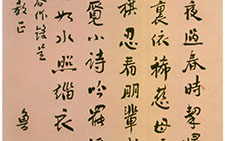 夜過春時挈婦
裏依稀慈母
旗忍看朋輩
覓小詩吟罷
如水照緇衣
作錄呈
教正
魯